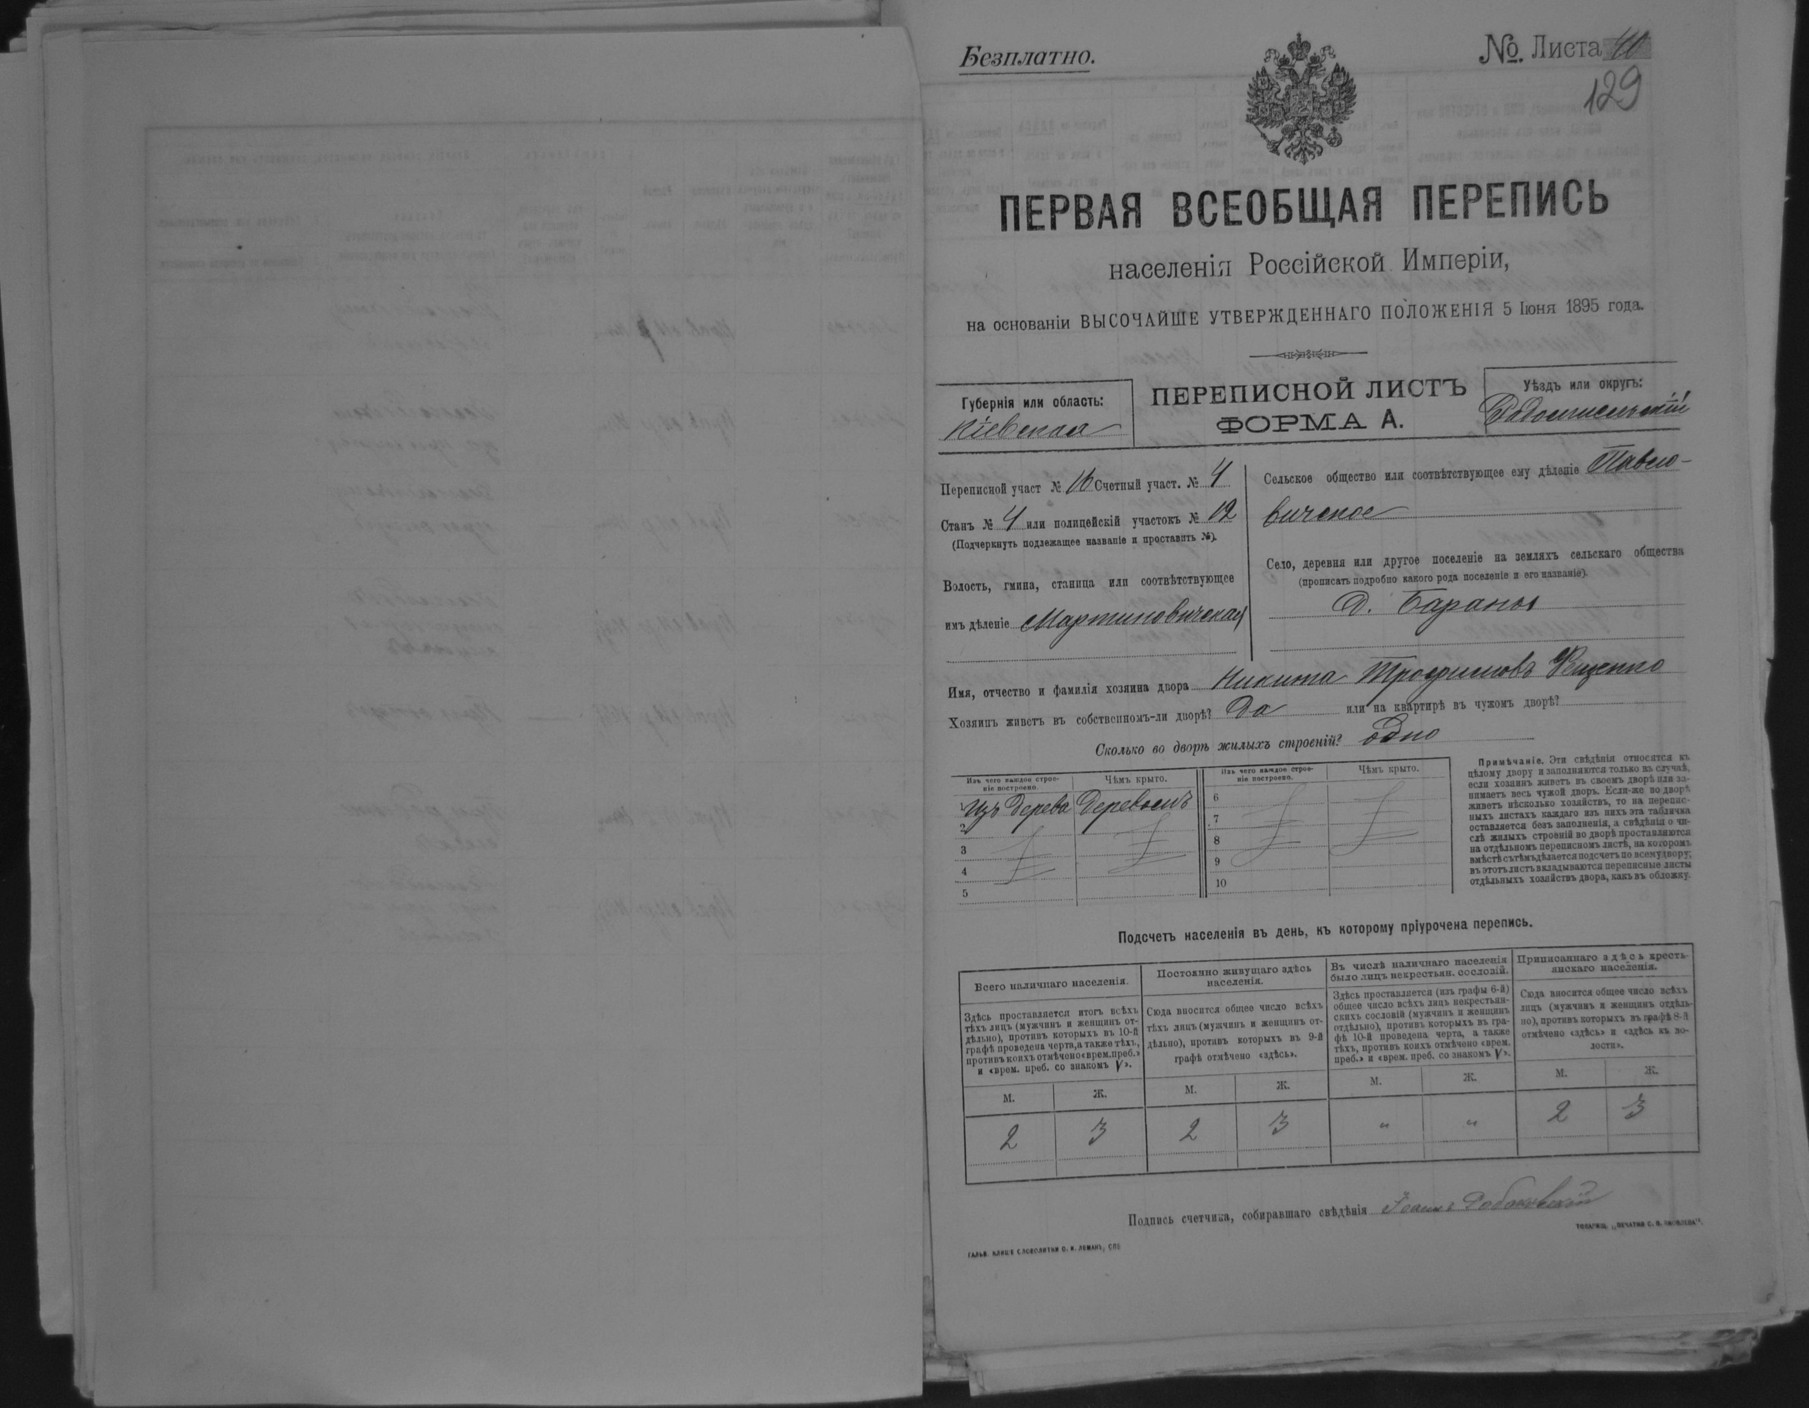 Безплатно.
№ Листа 40
129
ПЕРВАЯ ВСЕОБЩАЯ ПЕРЕПИСЬ
населенія Россійской Имперіи,
на основаніи ВЫСОЧАЙШЕ УТВЕРЖДЕННАГО ПОЛОЖЕНІЯ 5 Іюня 1895 года.
Губернія или область:
Кіевская
ПЕРЕПИСНОЙ ЛИСТЪ
ФОРМА А.
Уѣздъ или округъ:
Радомысльскій
Переписной участ № 16 Счетный участ. № 4
Станъ № 4 или полицейскій участокъ № 12
(Подчеркнуть подлежащее названіе и проставить №).
Волость, гмина, станица или соотвѣтствующее
имъ дѣленіе Мартиновичская
Сельское общество или соотвѣтствующее ему дѣленіе Павло-
вичское
Село, деревня или другое поселеніе на земляхъ сельскаго общества
(прописать подробно какого рода поселеніе и его названіе).
д. Бараны
Имя, отчество и фамилія хозяина двора Никита Трофимовъ Ященко
Хозяинъ живетъ въ собственномъ-ли дворѣ? Да или на квартирѣ въ чужомъ дворѣ?
Сколько во дворѣ жилыхъ строеній? одно
Изъ чего каждое строе-
ніе построено.
Чѣмъ крыто.
Изъ чего каждое строе-
ніе построено.
Чѣмъ крыто.
1 Изъ дерева деревомъ
2
3
4
5
6
7
8
9
10
Примѣчаніе. Эти свѣдѣнія относятся къ
цѣлому двору и заполняются только въ случаѣ,
если хозяинъ живетъ въ своемъ дворѣ или за-
нимаетъ весь чужой дворъ. Если-же во дворѣ
живетъ нѣсколько хозяйствъ, то на перепис-
ныхъ листахъ каждаго изъ нихъ эта табличка
оставляется безъ заполненія, а свѣдѣнія о чи-
слѣ жилыхъ строеній во дворѣ проставляются
на отдѣльномъ переписномъ листѣ, на которомъ
вмѣстѣ съ тѣмъ дѣлается подсчетъ по всему двору;
въ этотъ листъ вкладываются переписные листы
отдѣльныхъ хозяйствъ двора, какъ въ обложку.
Подсчетъ населенія въ день, къ которому пріурочена перепись.
Всего наличнаго населенія.
Здѣсь проставляется итогъ всѣхъ
тѣхъ лицъ (мужчинъ и женщинъ от-
дѣльно), противъ которыхъ въ 10-й
графѣ проведена черта, а также тѣхъ,
противъ коихъ отмѣчено «врем. преб.»
и «врем. преб. со знакомъ V».
Постоянно живущаго здѣсь
населенія.
Сюда вносится общее число всѣхъ
тѣхъ лицъ (мужчинъ и женщинъ от-
дѣльно), противъ которыхъ въ 9-й
графѣ отмѣчено «здѣсь».
Въ числѣ наличнаго населенія
было лицъ некрестьян. сословій.
Здѣсь проставляется (изъ графы 6-й)
общее число всѣхъ лицъ некрестьян-
скихъ сословій (мужчинъ и женщинъ
отдѣльно), противъ которыхъ въ гра-
фѣ 10-й проведена черта, а также
тѣхъ, противъ коихъ отмѣчено «врем.
преб.» и «врем. преб. со знакомъ V».
Приписаннаго здѣсь кресть-
янскаго населенія.
Сюда вносится общее число всѣхъ
лицъ (мужчинъ и женщинъ отдѣль-
но), противъ которыхъ въ графѣ 8-й
отмѣчено «здѣсь» и «здѣсь въ во-
лости».
М. Ж. М. Ж. М. Ж. М. Ж.
2 3 2 3 " " 2 3
Подпись счетчика, собиравшаго свѣдѣнія